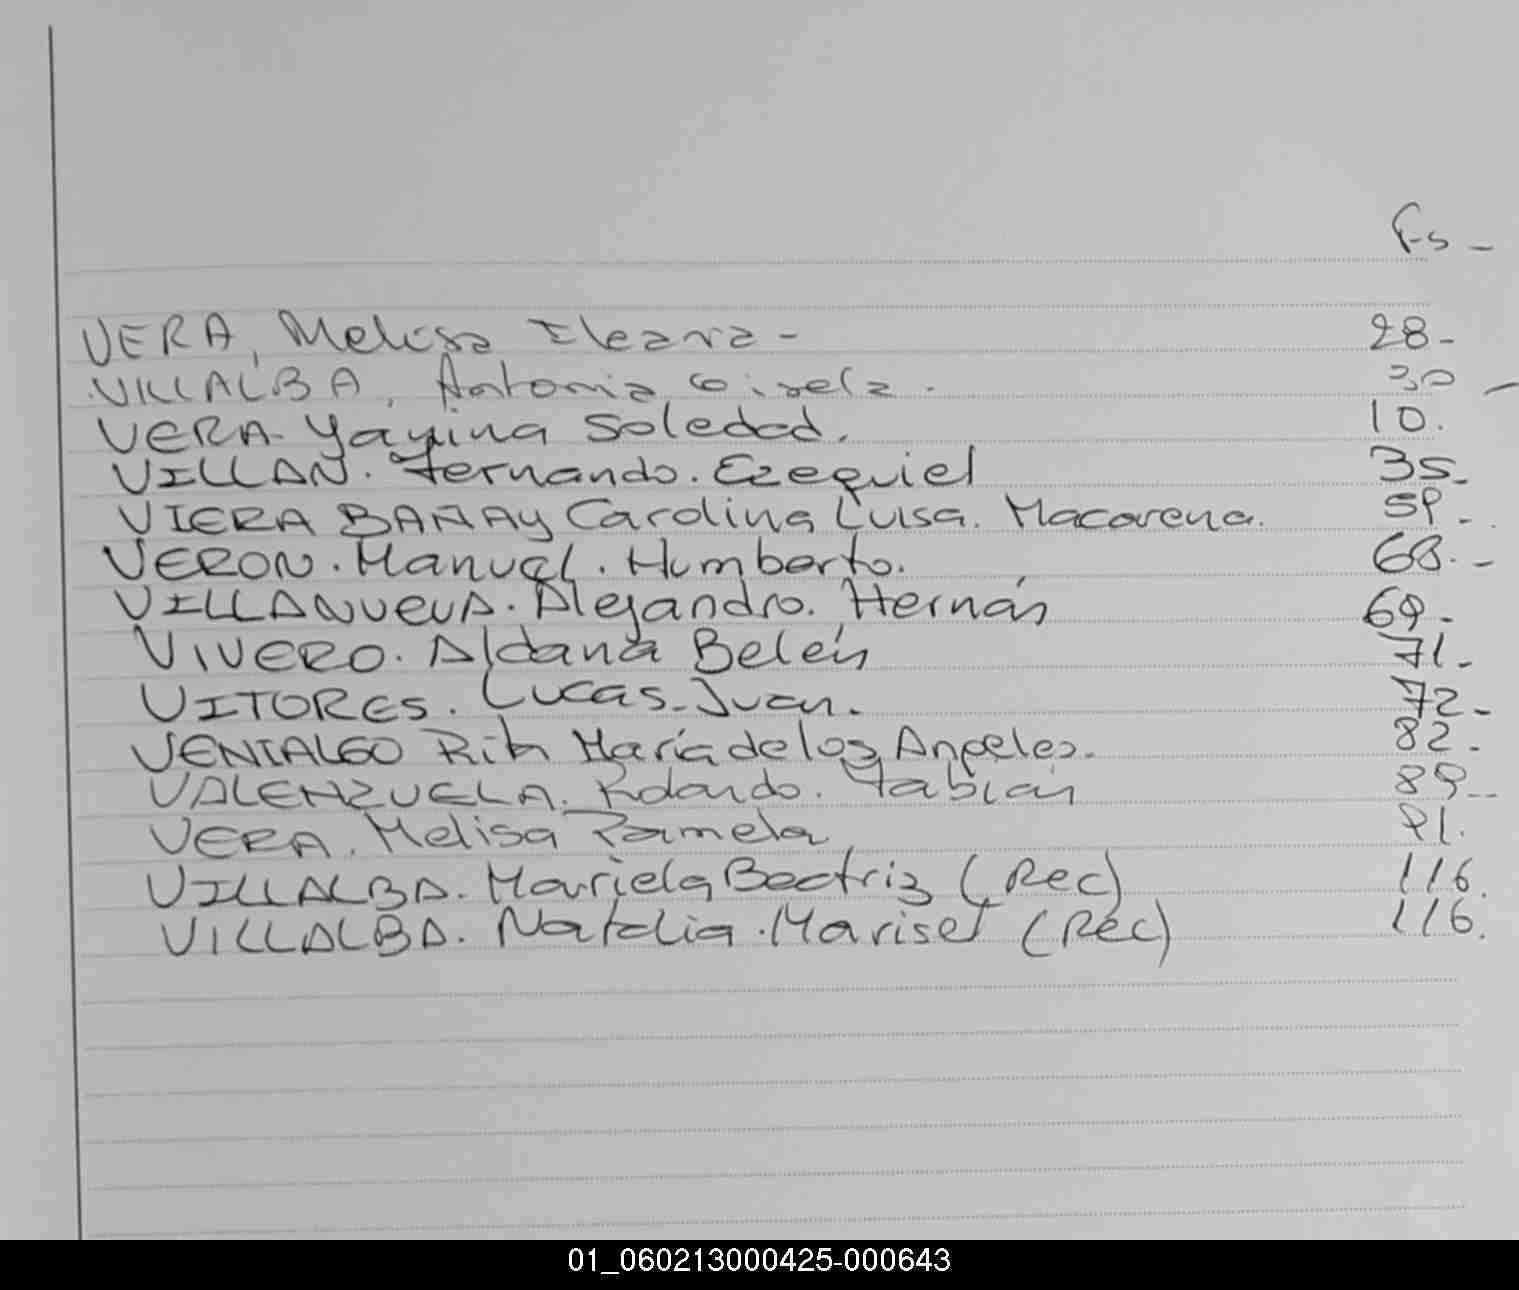 Fs -
VERA, Melisa Ileana - 28-
VILLALBA, Antonia Gisela - 30 -
VERA - Yanina Soledad. 10.
VILLAN. Fernando. Ezequiel 35-
VIERA BAÑAY Carolina Luisa. Macarena. 59-
VERON. Manuel. Humberto. 68.-
VILLANUEVA. Alejandro. Hernán 69-
VIVERO. Aldana Belén 71-
VITORES. Lucas-Juan. 72-
VENIALGO Rita María de los Angeles. 82-
VALENZUELA. Rolando. Fabián 89--
VERA. Melisa Pamela 91.
VILLALBA. Mariela Beatriz (Rec) 116.
VILLALBA. Natalia. Marisel (Rec) 116.
01_060213000425-000643